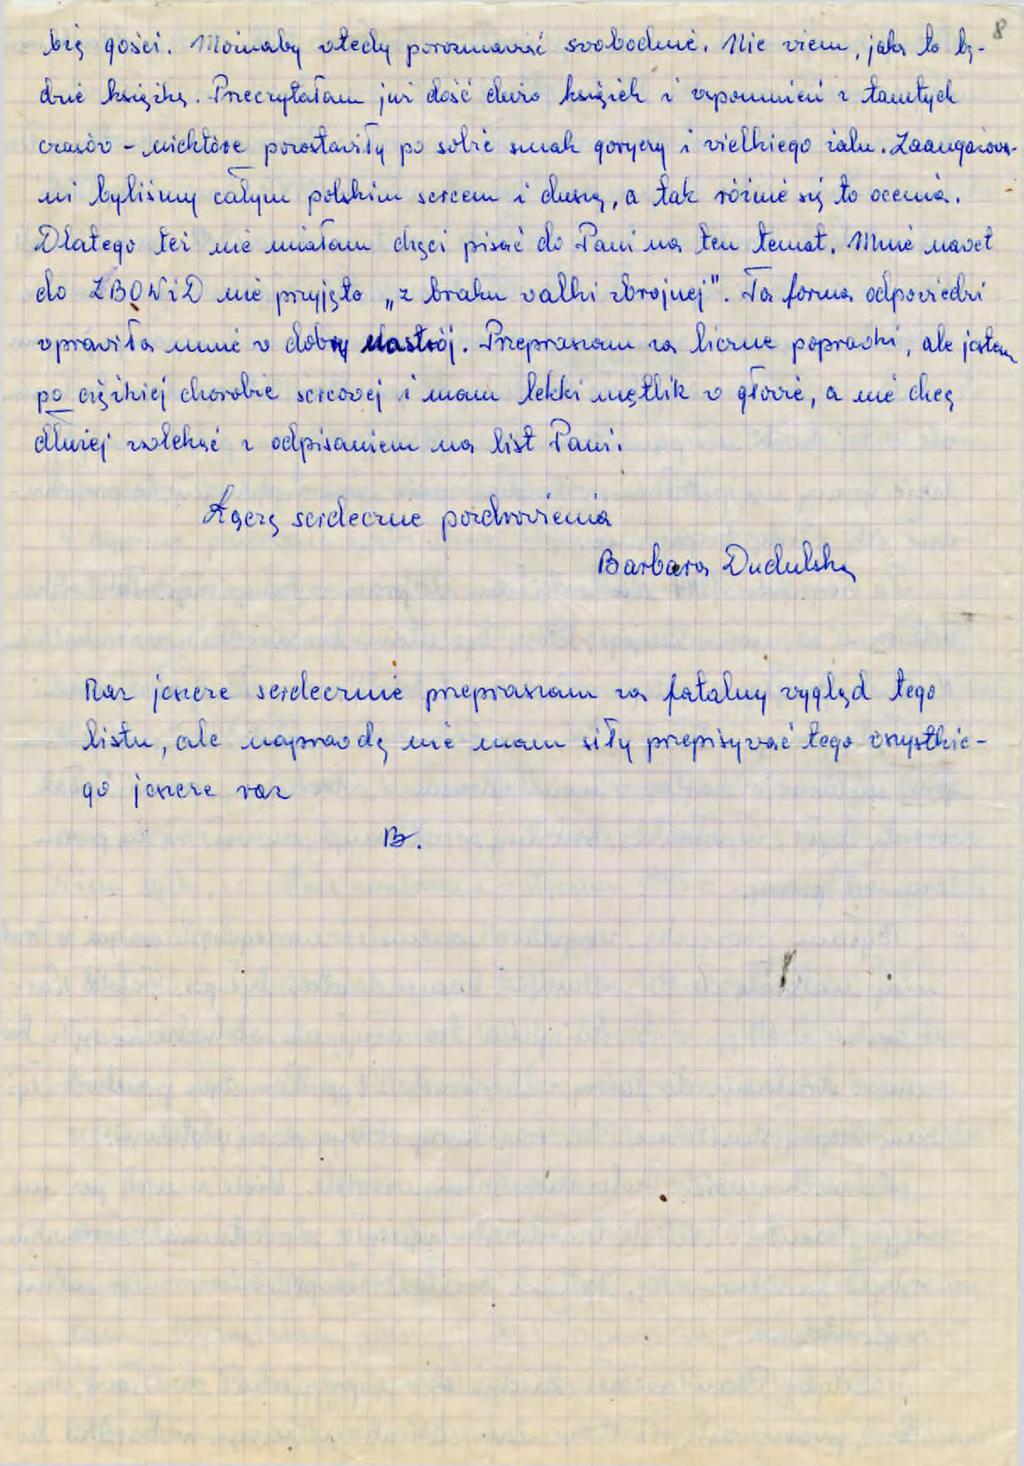 8
bię gości. Możnaby wtedy porozmawiać swobodnie. Nie wiem, jaka to bę-
dzie książka. Przeczytałam już dość dużo książek i wspomnień z tamtych
czasów - niektóre pozostawiły po sobie smak goryczy i wielkiego żalu. Zaangażowa-
ni byliśmy całym polskim sercem i duszą, a tak różnie się to ocenia.
Dlatego też nie miałam chęci pisać do Pani na ten temat. Mnie nawet
do ZBOWiD nie przyjęto „z braku walki zbrojnej". Ta forma odpowiedzi
wprawiła mnie w dobry nastrój. Przepraszam za liczne poprawki, ale jestem
po ciężkiej chorobie sercowej i mam lekki mętlik w głowie, a nie chcę
dłużej zwlekać z odpisaniem na list Pani.
Łączę serdeczne pozdrowienia
Barbara Dudulska
Raz jeszcze serdecznie przepraszam za fatalny wygląd tego
listu, ale naprawdę nie mam siły przepisywać tego wszystkie-
go jeszcze raz
B.